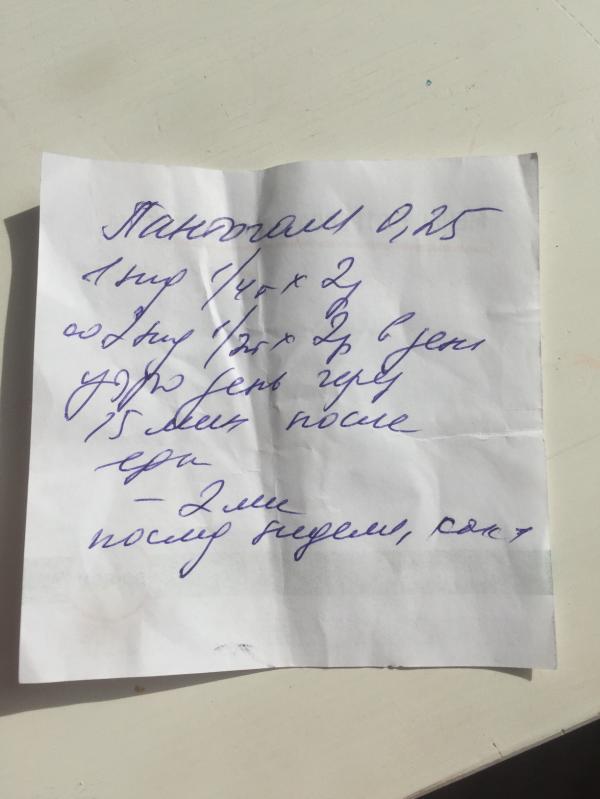 Пантогам 0,25
1 нед 1/4т x 2р
со 2 нед 1/2т x 2р в день
утро день через
15 мин после
еды
– 2 ме
послед недели, как